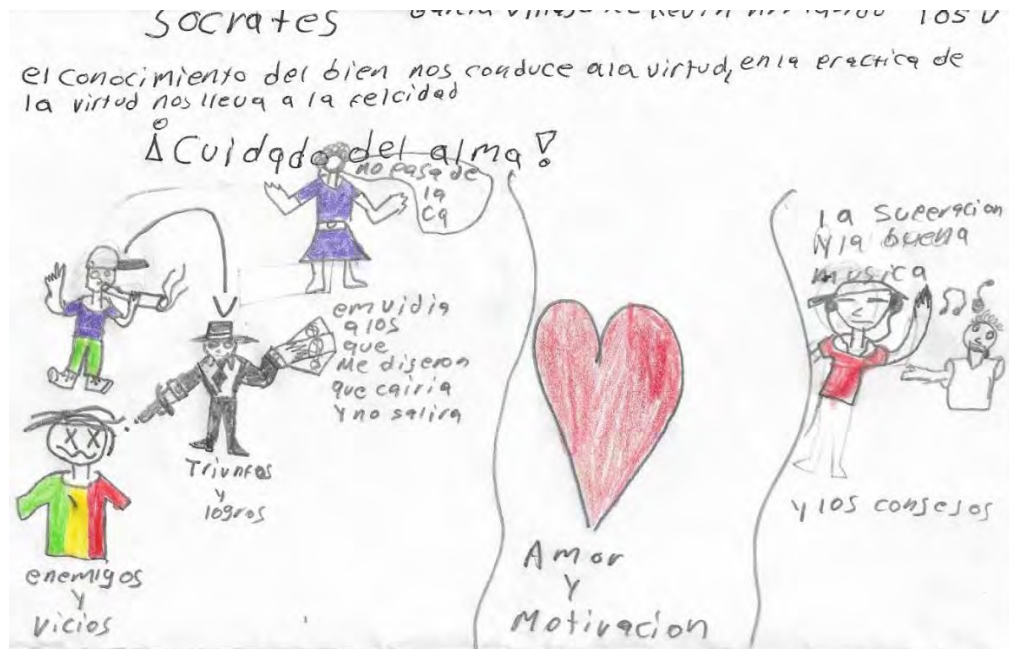 Socrates
el conocimiento del bien nos conduce ala virtud, en la practica de
la virtud nos lleva a la felcidad
¡Cuidado del alma!
no pasa de
la
Ca
emvidia
a los
que
Me dijeron
que cairia
Y no salira
Triunfos
y
logros
enemigos
Y
Vicios
Amor
Y
Motivacion
la superacion
Y la buena
musica
y los consejos